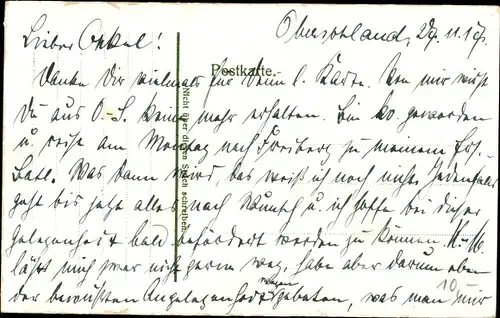 Oberschland, 29. 11. 17.
Lieber Onkel!
Postkarte.
Danke Dir vielmals für Deine l. Karte. Von mir wirst
Du aus O.-S. keine mehr erhalten. Bin kv. geworden
u. reise am Montag nach Freiberg zu meinem Ers.
Batl. Was dann wird, das weiß ich noch nicht. Jedenfalls
geht bis jetzt alles nach Wunsch u. ich hoffe bei dieser
Gelegenheit bald befördert werden zu können. H. M.
läßt mich zwar nicht gerne weg, habe aber darum eben
der bewußten Angelegenheit wegen gebeten, was man mir
Nicht über diesen Strich schreiben.
10